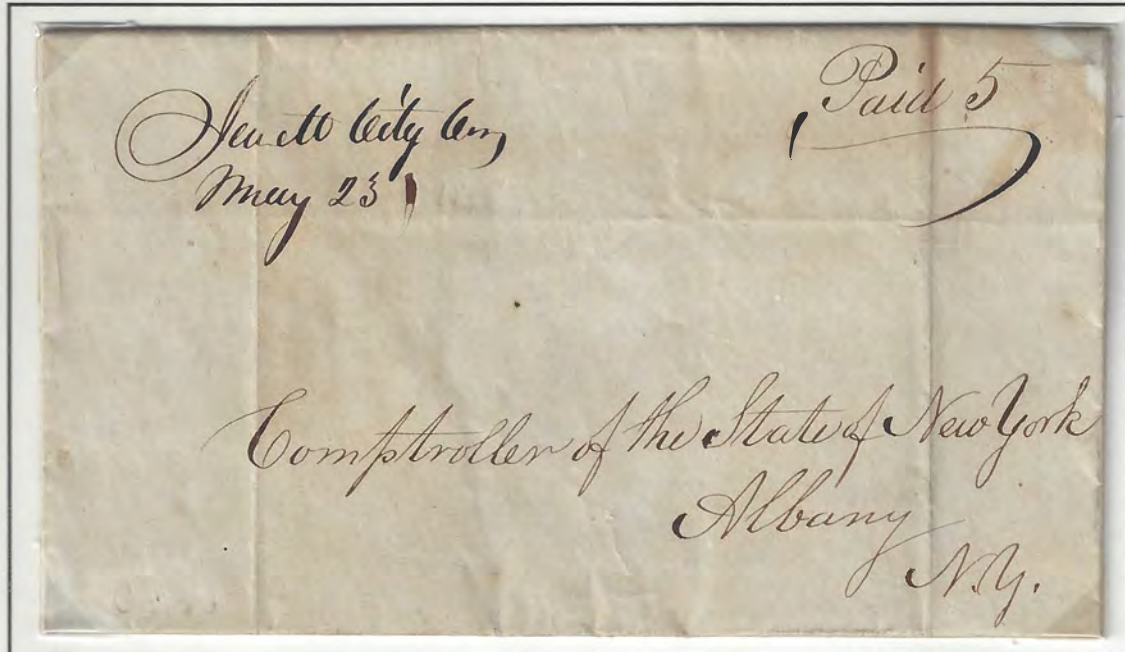 Jewett City Con
May 23
Paid 5
Comptroller of the State of New York
Albany
N.Y.